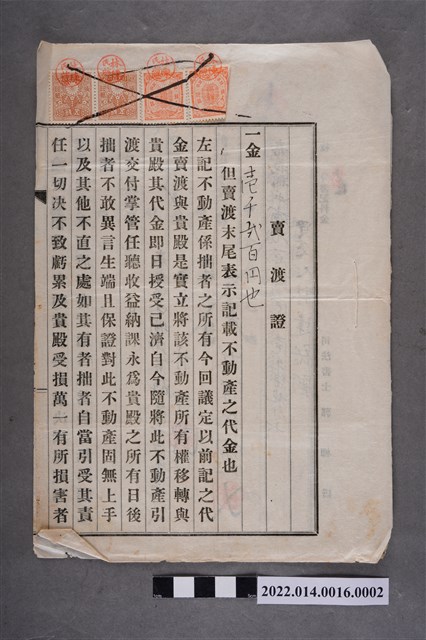 賣渡證
一金壹千弐百円也
但賣渡末尾表示記載不動產之代金也
左記不動產係拙者之所有今回議定以前記之代
金賣渡與貴殿是實立將該不動產所有權移轉與
貴殿其代金卽日授受已濟自今隨將此不動產引
渡交付掌管任聽收益納課永爲貴殿之所有日後
拙者不敢異言生端且保證對此不動產固無上手
以及其他不直之處如其有者拙者自當引受其責
任一切決不致虧累及貴殿受損萬一有所損害者
2022.014.0016.0002